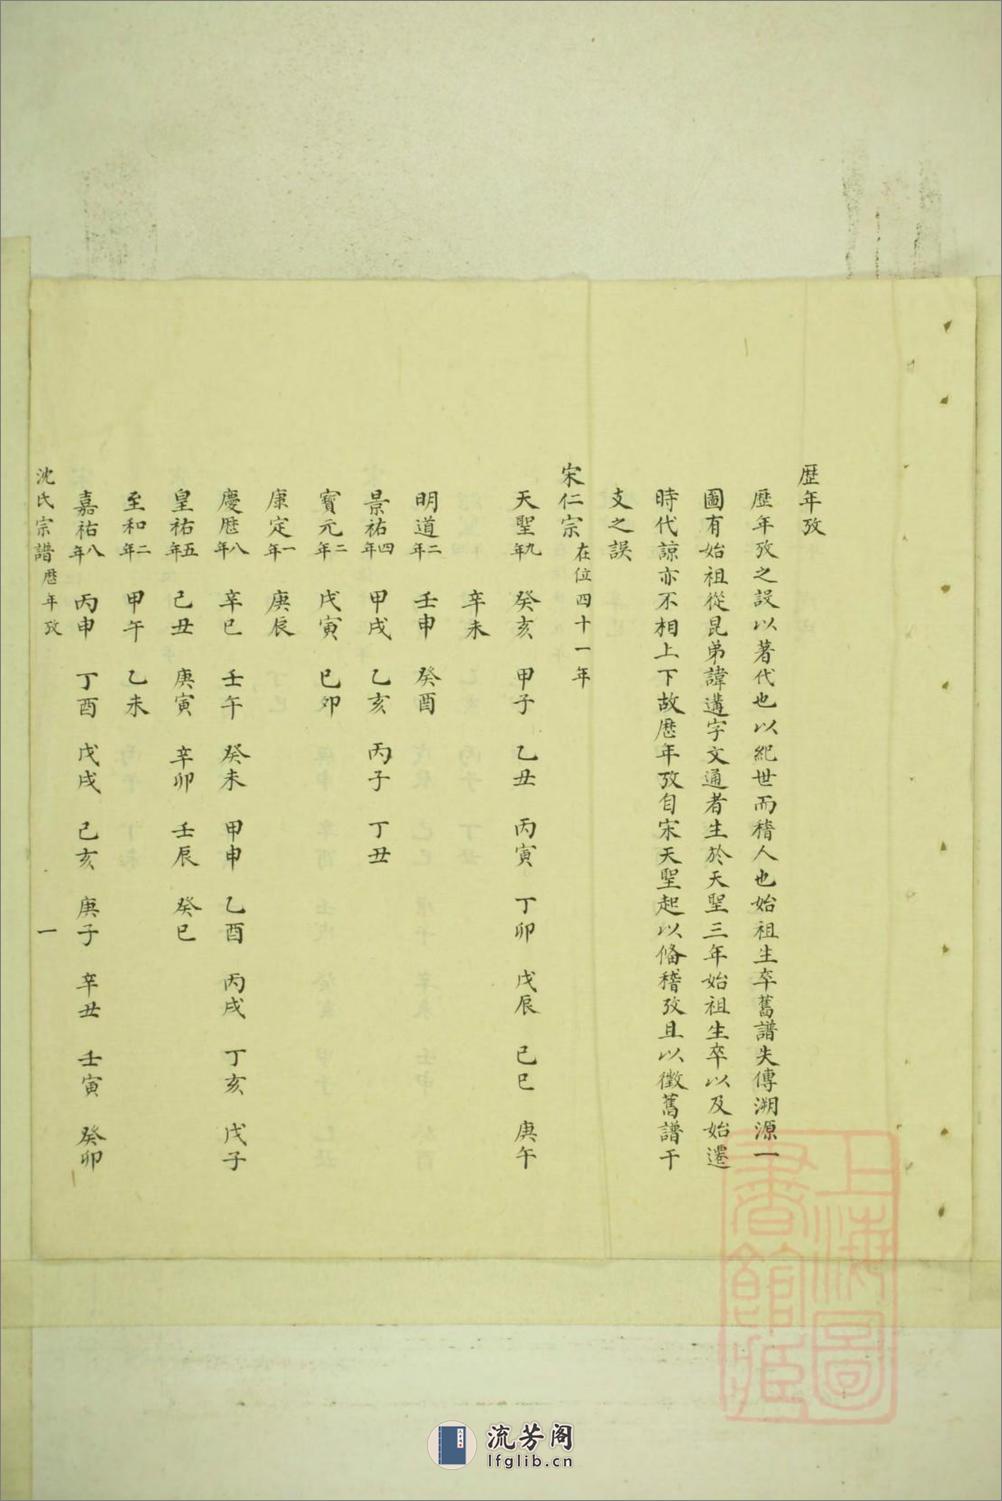 歷年攷
歷年攷之設以著代也以紀世而稽人也始祖生卒舊譜失傳溯源一
圖有始祖從昆弟諱遘字文通者生於天聖三年始祖生卒以及始遷
時代諒亦不相上下故歷年攷自宋天聖起以俻稽攷且以徵舊譜干
支之誤
宋仁宗在位四十一年
天聖九年 癸亥 甲子 乙丑 丙寅 丁卯 戊辰 己巳 庚午
辛未
明道二年 壬申 癸酉
景祐四年 甲戌 乙亥 丙子 丁丑
寶元二年 戊寅 已卯
康定一年 庚辰
慶歷八年 辛巳 壬午 癸未 甲申 乙酉 丙戌 丁亥 戊子
皇祐五年 己丑 庚寅 辛卯 壬辰 癸巳
至和二年 甲午 乙未
嘉祐八年 丙申 丁酉 戊戌 己亥 庚子 辛丑 壬寅 癸卯
沈氏宗譜 歷年攷 一
上海圖書館藏
流芳阁
lfglib.cn